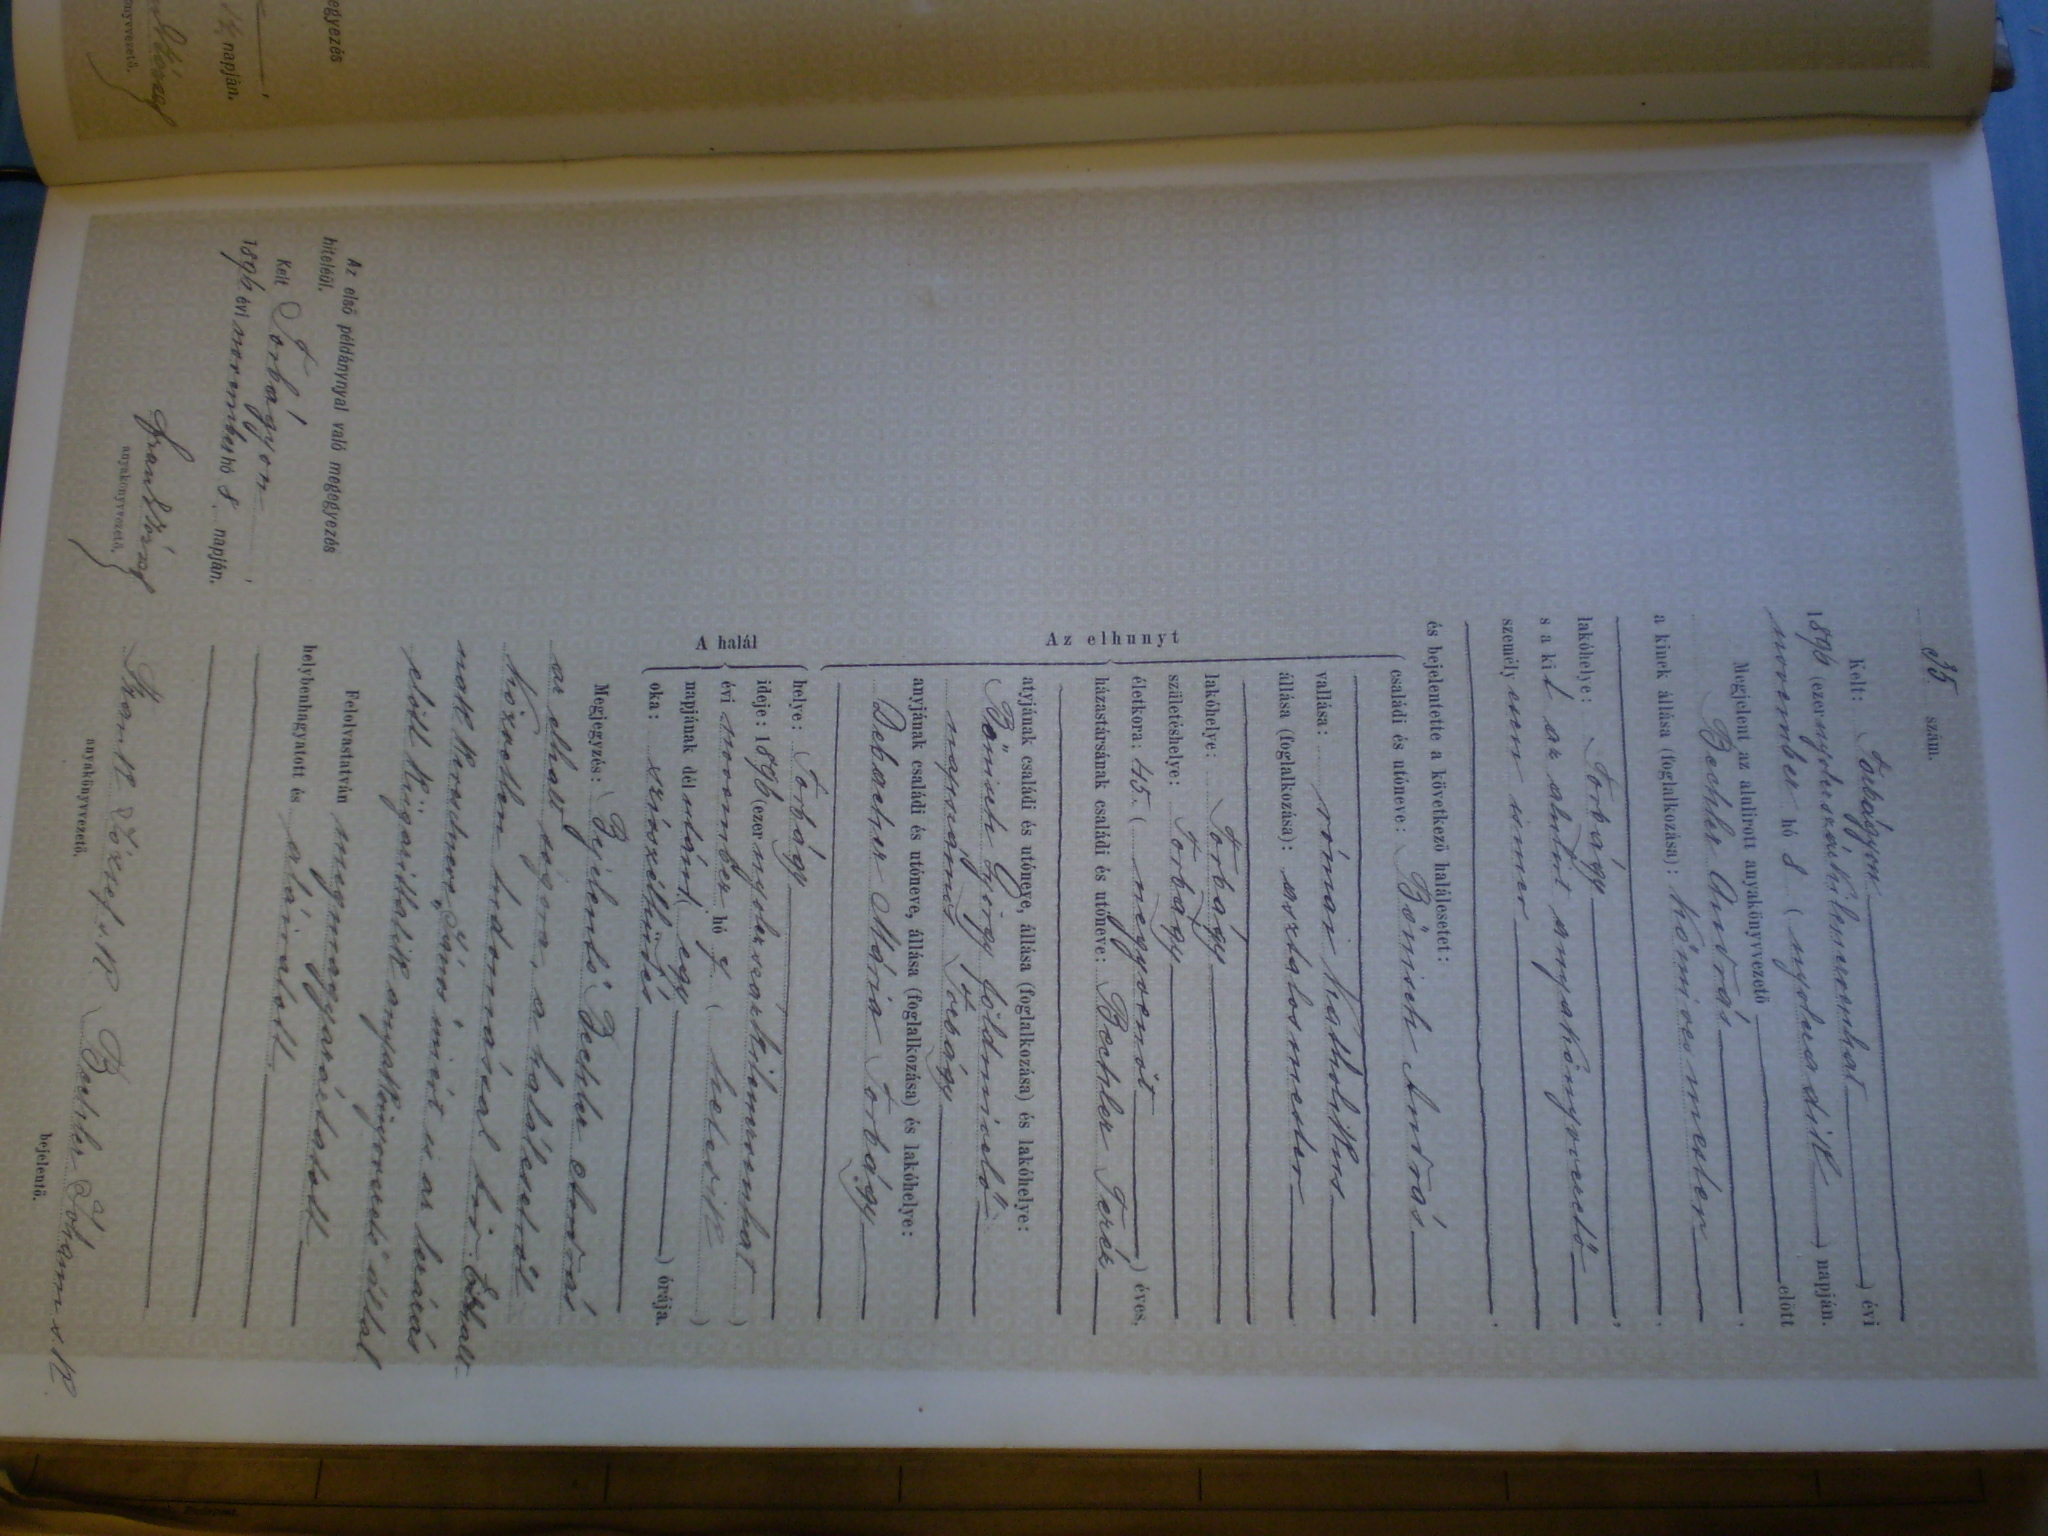 35 szám.
Kelt: Torbágyon
1896 (ezer nyolczszázkilenczvenhat) évi
november hó 8 (nyolczadik) napján.
Megjelent az alulirott anyakönyvvezető előtt
Bechler András,
a kinek állása (foglalkozása): kőmives mester,
lakóhelye: Torbágy,
s a kit az alulirt anyakönyvvezető
személyesen ismer,
és bejelentette a következő halálesetet:
Az elhunyt
családi és utóneve: Bömisch András
vallása: római katholikus
állása (foglalkozása): asztalosmester
lakóhelye: Torbágy
születéshelye: Torbágy
életkora: 45. (negyvenöt) éves,
házastársának családi és utóneve: Bechler Teréz
atyjának családi és utóneve, állása (foglalkozása) és lakóhelye:
Bömisch György földmivelő
napszámos Torbágy
anyjának családi és utóneve, állása (foglalkozása) és lakóhelye:
Mária Torbágy
A halál
helye: Torbágy
ideje: 1896 (ezer nyolczszázkilenczvenhat)
évi november hó 7 (hetedik)
napjának dél után 1 (egy) órája.
oka: szívszélhűdés
Megjegyzés: Bejelentő Bechler András
az elhalt sógora, a halálesetről
közvetlen tudomással bir. Elhalt-
nak
előtt anyakönyvvezető által
Felolvastatván megmagyaráztatott
helybenhagyatott és aláiratott.
Frank József s. k.
anyakönyvvezető.
Bechler Johann s. k.
bejelentő.
Az első példánynyal való megegyezés
hiteleül.
Kelt Torbágyon
1896 évi november hó 8. napján.
Frank József
anyakönyvvezető.
egyezés
14 napján.
József
nyvvezető.